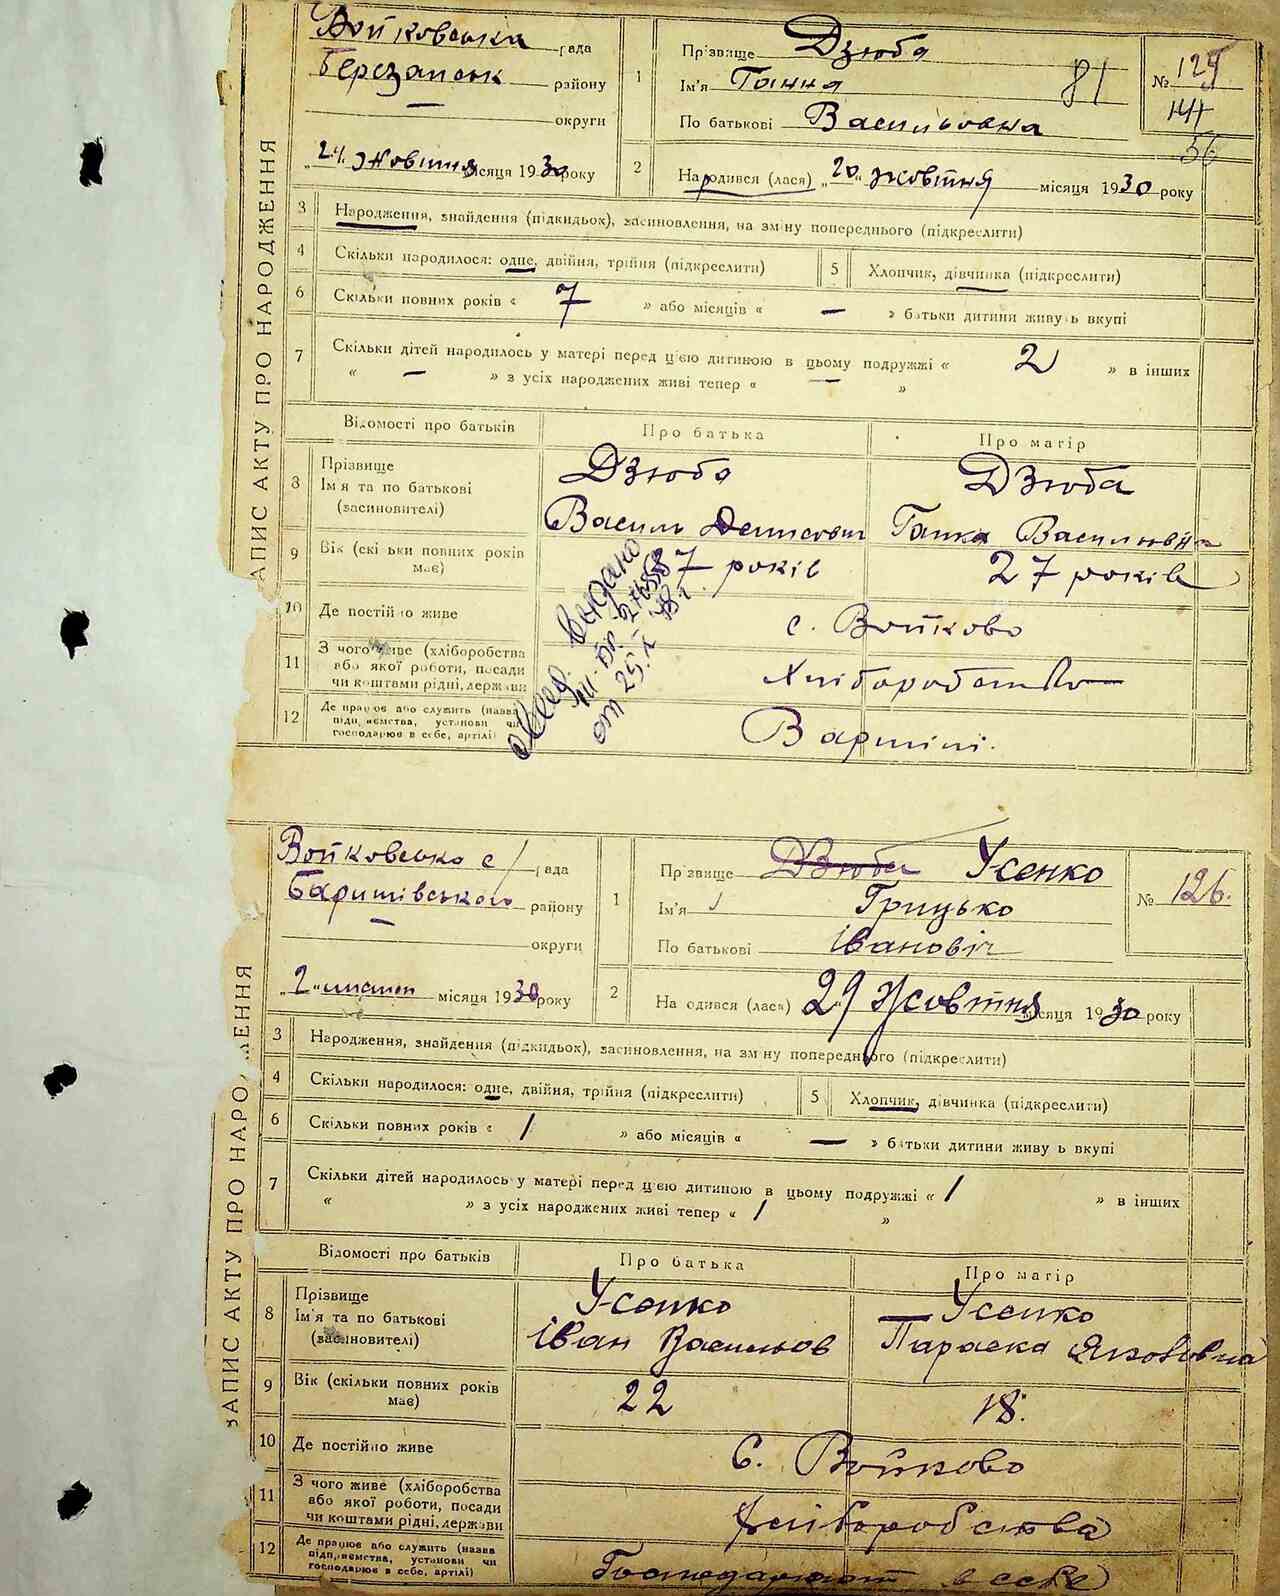 ЗАПИС АКТУ ПРО НАРОДЖЕННЯ
Войковська рада
Березанськ району
— округи
„24" жовтня місяця 1930 року
1 Прізвище Дзюба
Ім'я Ганна 81
По батькові Васильовна
№ 125
144
56
2 Народився (лася) „20" жовтня місяця 1930 року
3 Народження, знайдення (підкидьок), засиновлення, на зміну попереднього (підкреслити)
4 Скільки народилося: одне, двійня, трійня (підкреслити) 5 Хлопчик, дівчинка (підкреслити)
6 Скільки повних років « 7 » або місяців « — » батьки дитини живуть вкупі
7 Скільки дітей народилось у матері перед цією дитиною в цьому подружжі « 2 » в інших
« — » з усіх народжених живі тепер « — »
Відомості про батьків Про батька Про матір
8 Прізвище Дзюба Дзюба
Ім'я та по батькові
(засиновителі) Василь Денисович Ганна Васильовна
9 Вік (скільки повних років має) 7 років 27 років
10 Де постійно живе с. Войково
11 З чого живе (хліборобства
або якої роботи, посади
чи коштами рідні, держави Хліборобство
12 Де працює або служить (назва
підприємства, установи чи
господарює в себе, артілі) Вартілі.
выдано
от 25.X
ЗАПИС АКТУ ПРО НАРОДЖЕННЯ
Войковська с/рада
Баришівського району
— округи
„2" листоп місяця 1930 року
1 Прізвище Дзюба Усенко
Ім'я Грицько
По батькові Івановіч
№ 126.
2 Народився (лася) 29 жовтня місяця 1930 року
3 Народження, знайдення (підкидьок), засиновлення, на зміну попереднього (підкреслити)
4 Скільки народилося: одне, двійня, трійня (підкреслити) 5 Хлопчик, дівчинка (підкреслити)
6 Скільки повних років « 1 » або місяців « — » батьки дитини живуть вкупі
7 Скільки дітей народилось у матері перед цією дитиною в цьому подружжі « 1 » в інших
« » з усіх народжених живі тепер « 1 »
Відомості про батьків Про батька Про матір
8 Прізвище Усенко Усенко
Ім'я та по батькові
(засиновителі) Іван Васильов Параска Якововна
9 Вік (скільки повних років має) 22 18.
10 Де постійно живе С. Войково
11 З чого живе (хліборобства
або якої роботи, посади
чи коштами рідні, держави хліборобства
12 Де працює або служить (назва
підприємства, установи чи
господарює в себе, артілі) Господарют в себе